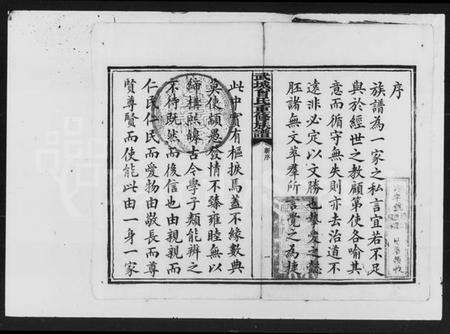 序
族譜為一家之私言宜若不足
與於經世之教顧第使各喻其
意而循守無失則亦去治道不
遠非必定以文勝也擊愛之
諸無文卒群所言覺之為捷
武城曾氏重修族譜
此中實有樞捩焉蓋不緣數典
莫使頑愚發情不臻雍睦無以
締構熙皞古今學子類能辨之
不待既然而後信也由親親而
仁民仁民而愛物由敬長而尊
賢尊賢而使能此由一身一家